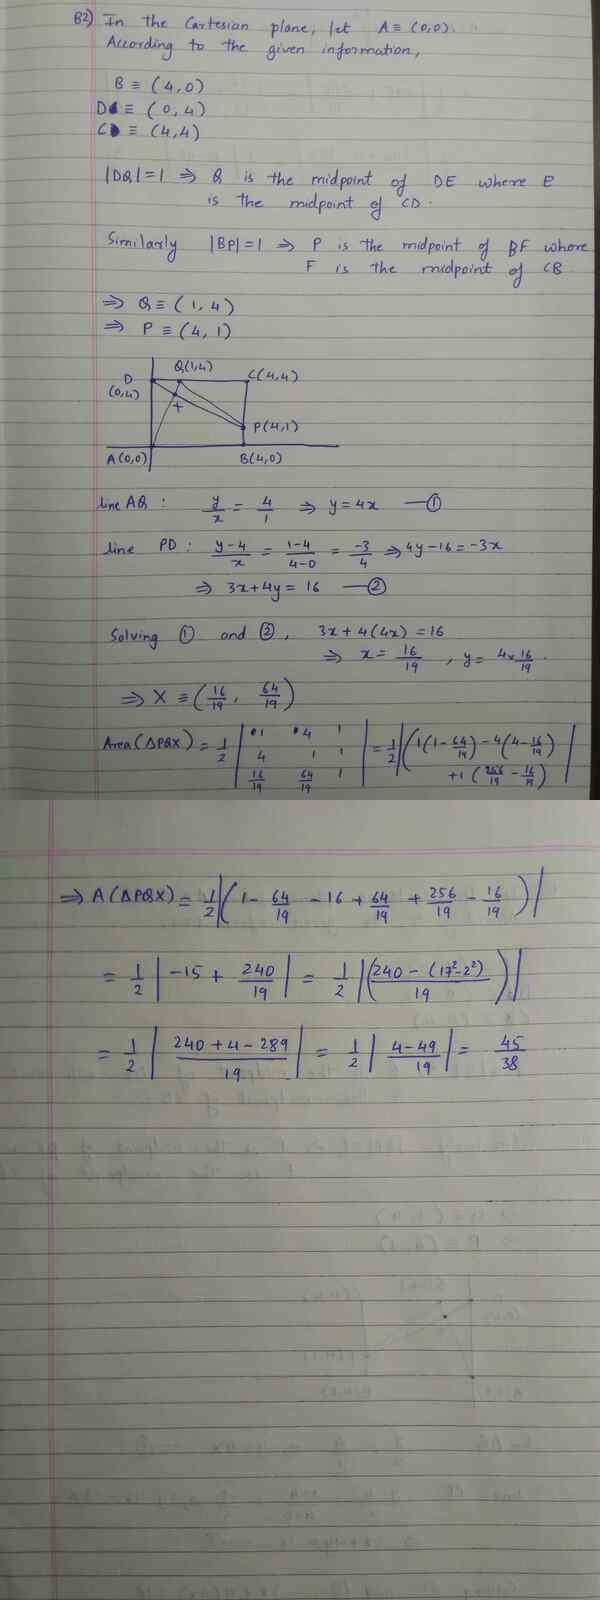 B2) In the Cartesian plane, let A ≡ (0,0).
According to the given information,
B ≡ (4,0)
D ≡ (0,4)
C ≡ (4,4)
|DQ|=1 ⇒ Q is the midpoint of DE where E
is the midpoint of CD.
Similarly |BP|=1 ⇒ P is the midpoint of BF where
F is the midpoint of CB
⇒ Q ≡ (1,4)
⇒ P ≡ (4,1)
Q(1,4)
D C(4,4)
(0,4)
X
P(4,1)
A(0,0) B(4,0)
line AQ : y/x = 4/1 ⇒ y=4x —①
line PD : y-4/x = 1-4/4-0 = -3/4 ⇒ 4y-16=-3x
⇒ 3x+4y = 16 —②
Solving ① and ②, 3x+4(4x) =16
⇒ x= 16/19 , y= 4×16/19.
⇒ X ≡ (16/19, 64/19)
Area(ΔPQX) = 1/2 | 1 4 1 | = 1/2 |(1(1-64/19) -4(4-16/19)
4 1 1
16/19 64/19 1 +1(256/19 - 16/19)|
⇒ A(ΔPQX) = 1/2 |(1- 64/19 -16 + 64/19 + 256/19 - 16/19)|
= 1/2 | -15 + 240/19 | = 1/2 |(240-(17²-2²)/19)|
= 1/2 | 240+4-289/19 | = 1/2 | 4-49/19 | = 45/38